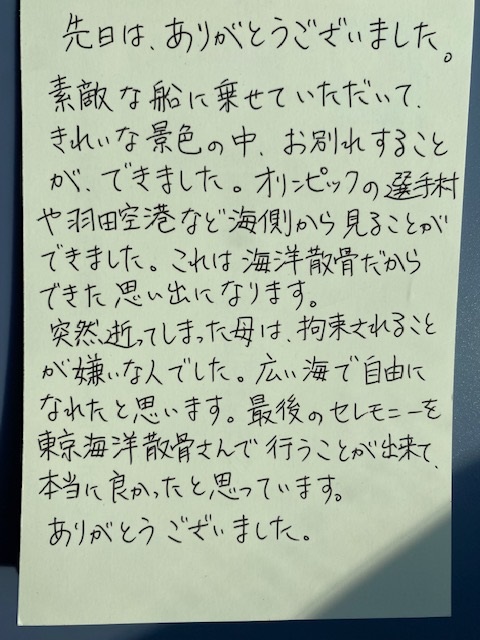 先日は、ありがとうございました。
素敵な船に乗せていただいて、
きれいな景色の中、お別れすること
が、できました。オリンピックの選手村
や羽田空港など海側から見ることが
できました。これは海洋散骨だから
できた思い出になります。
突然逝ってしまった母は、拘束されること
が嫌いな人でした。広い海で自由に
なれたと思います。最後のセレモニーを
東京海洋散骨さんで行うことが出来て、
本当に良かったと思っています。
ありがとうございました。